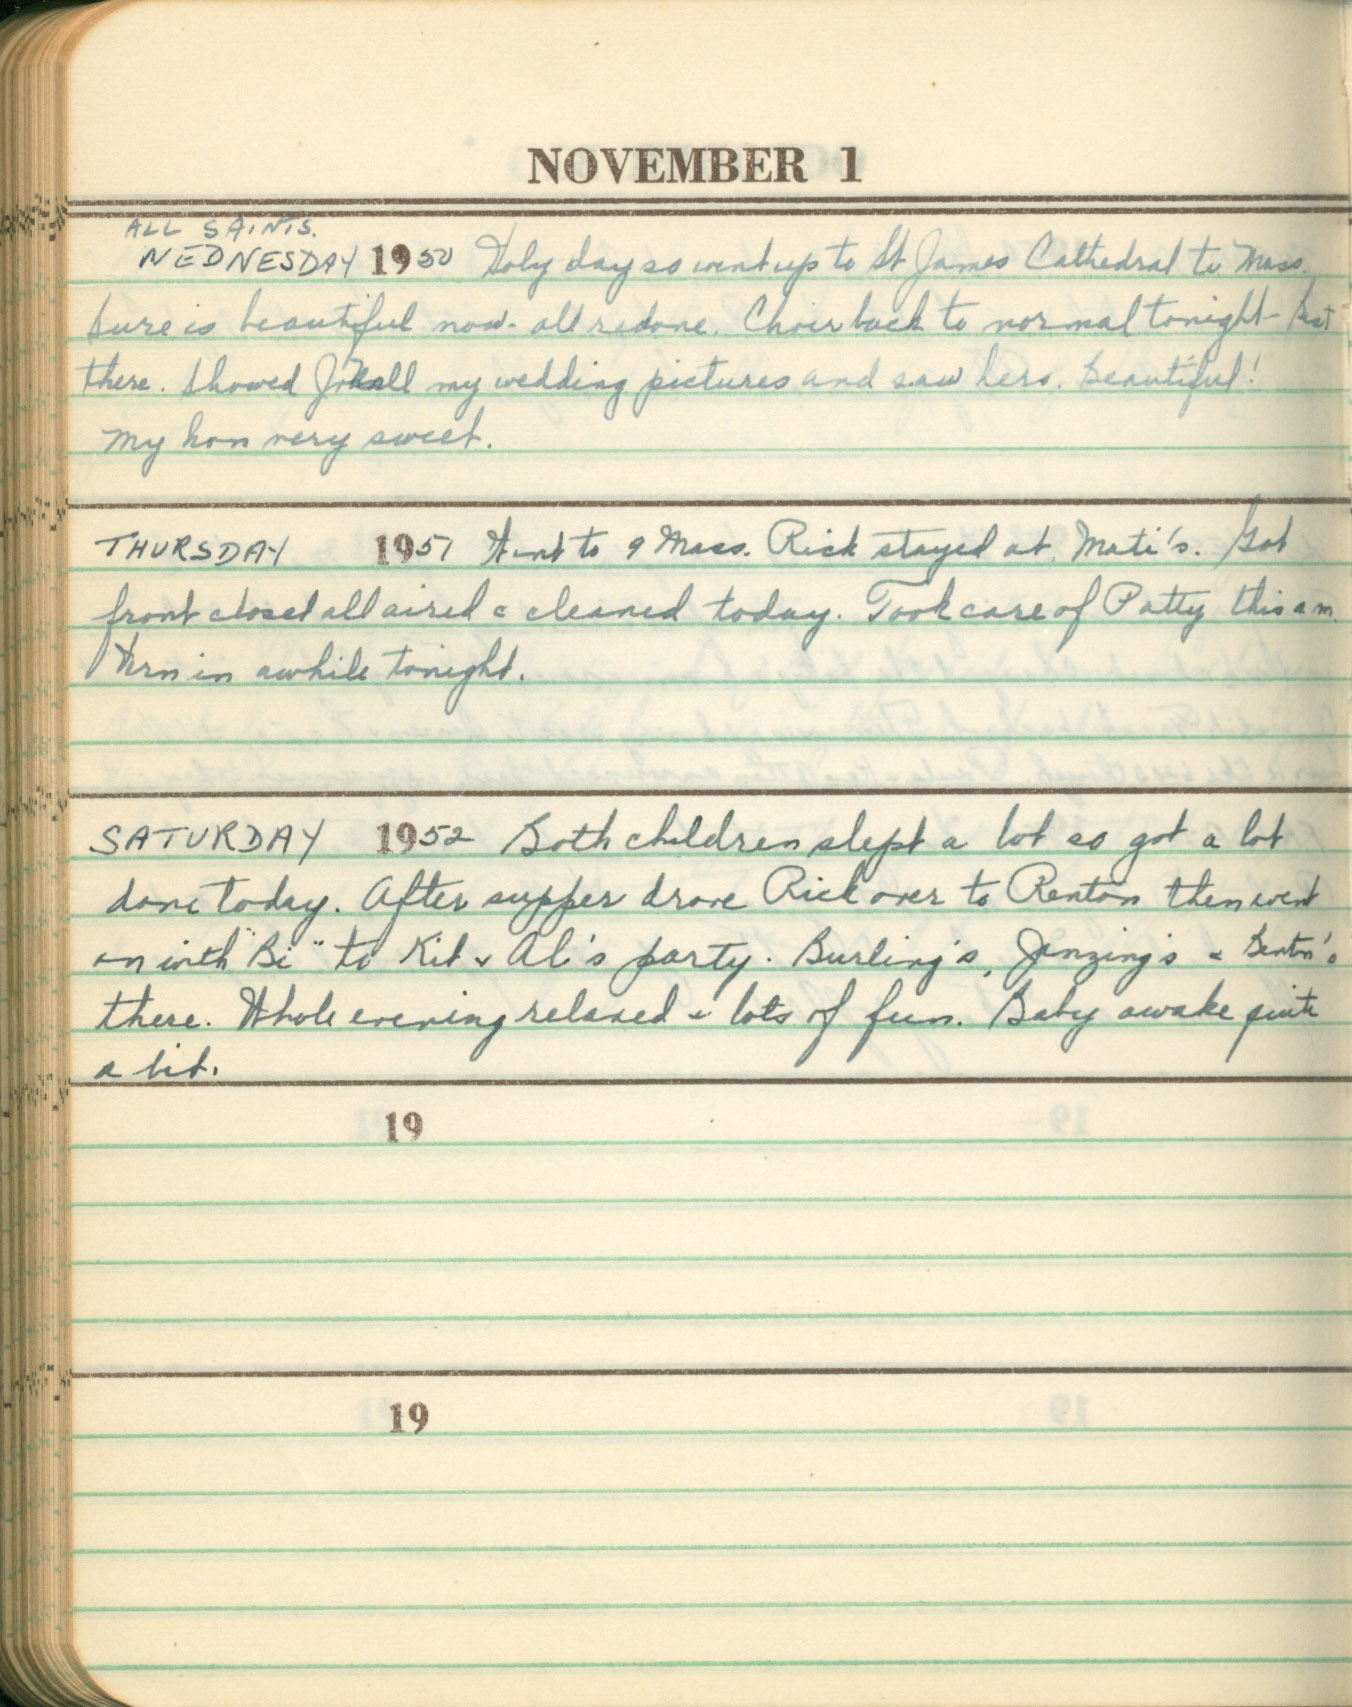 NOVEMBER 1
ALL SAINTS.
WEDNESDAY 1950 Holy day so went up to St James Cathedral to Mass.
Sure is beautiful now - all redone. Choir back to normal tonight -
there. Showed my wedding pictures and saw hers. Beautiful!
My hon very sweet.
THURSDAY 1951 Went to 9 Mass. Rick stayed at Mati's. Got
front closet all aired & cleaned today. Took care of Patty this a m.
Vern in awhile tonight.
SATURDAY 1952 Both children slept a lot so got a lot
done today. After supper drove Rick over to Renton then went
on with "Bi" to Kit & Al's party. Burling's, Janzing's & Benton's
there. Whole evening relaxed & lots of fun. Baby awake quite
a bit.
19
19